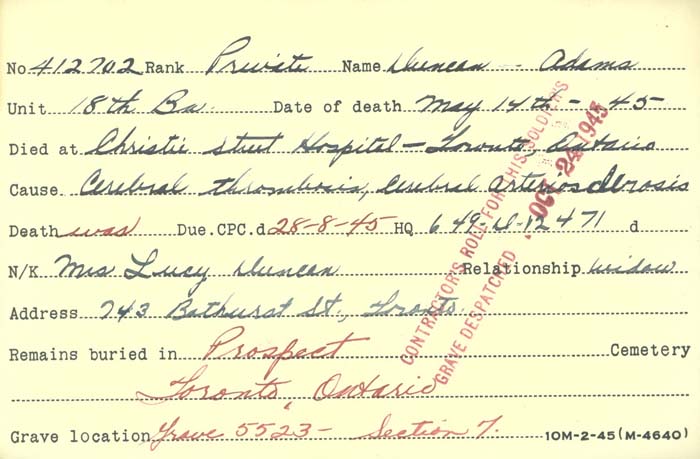 No 412702 Rank Private Name Duncan - Adams
Unit 18th Bn. Date of death May 14th - 45
Died at Christie Street Hospital - Toronto, Ontario
Cause Cerebral thrombosis, Cerebral Arteriosclerosis
Death was Due. CPC. d 28-8-45 HQ 649-D-12471 d
N/K Mrs Lucy Duncan Relationship widow
Address 743 Bathurst St., Toronto.
Remains buried in Prospect Cemetery
Toronto, Ontario
Grave location Grave 5523 - Section 7. 10M-2-45 (M-4640)
CONTRACTOR'S ROLL FOR THIS SOLDIER'S
GRAVE DESPATCHED OCT 24 1945